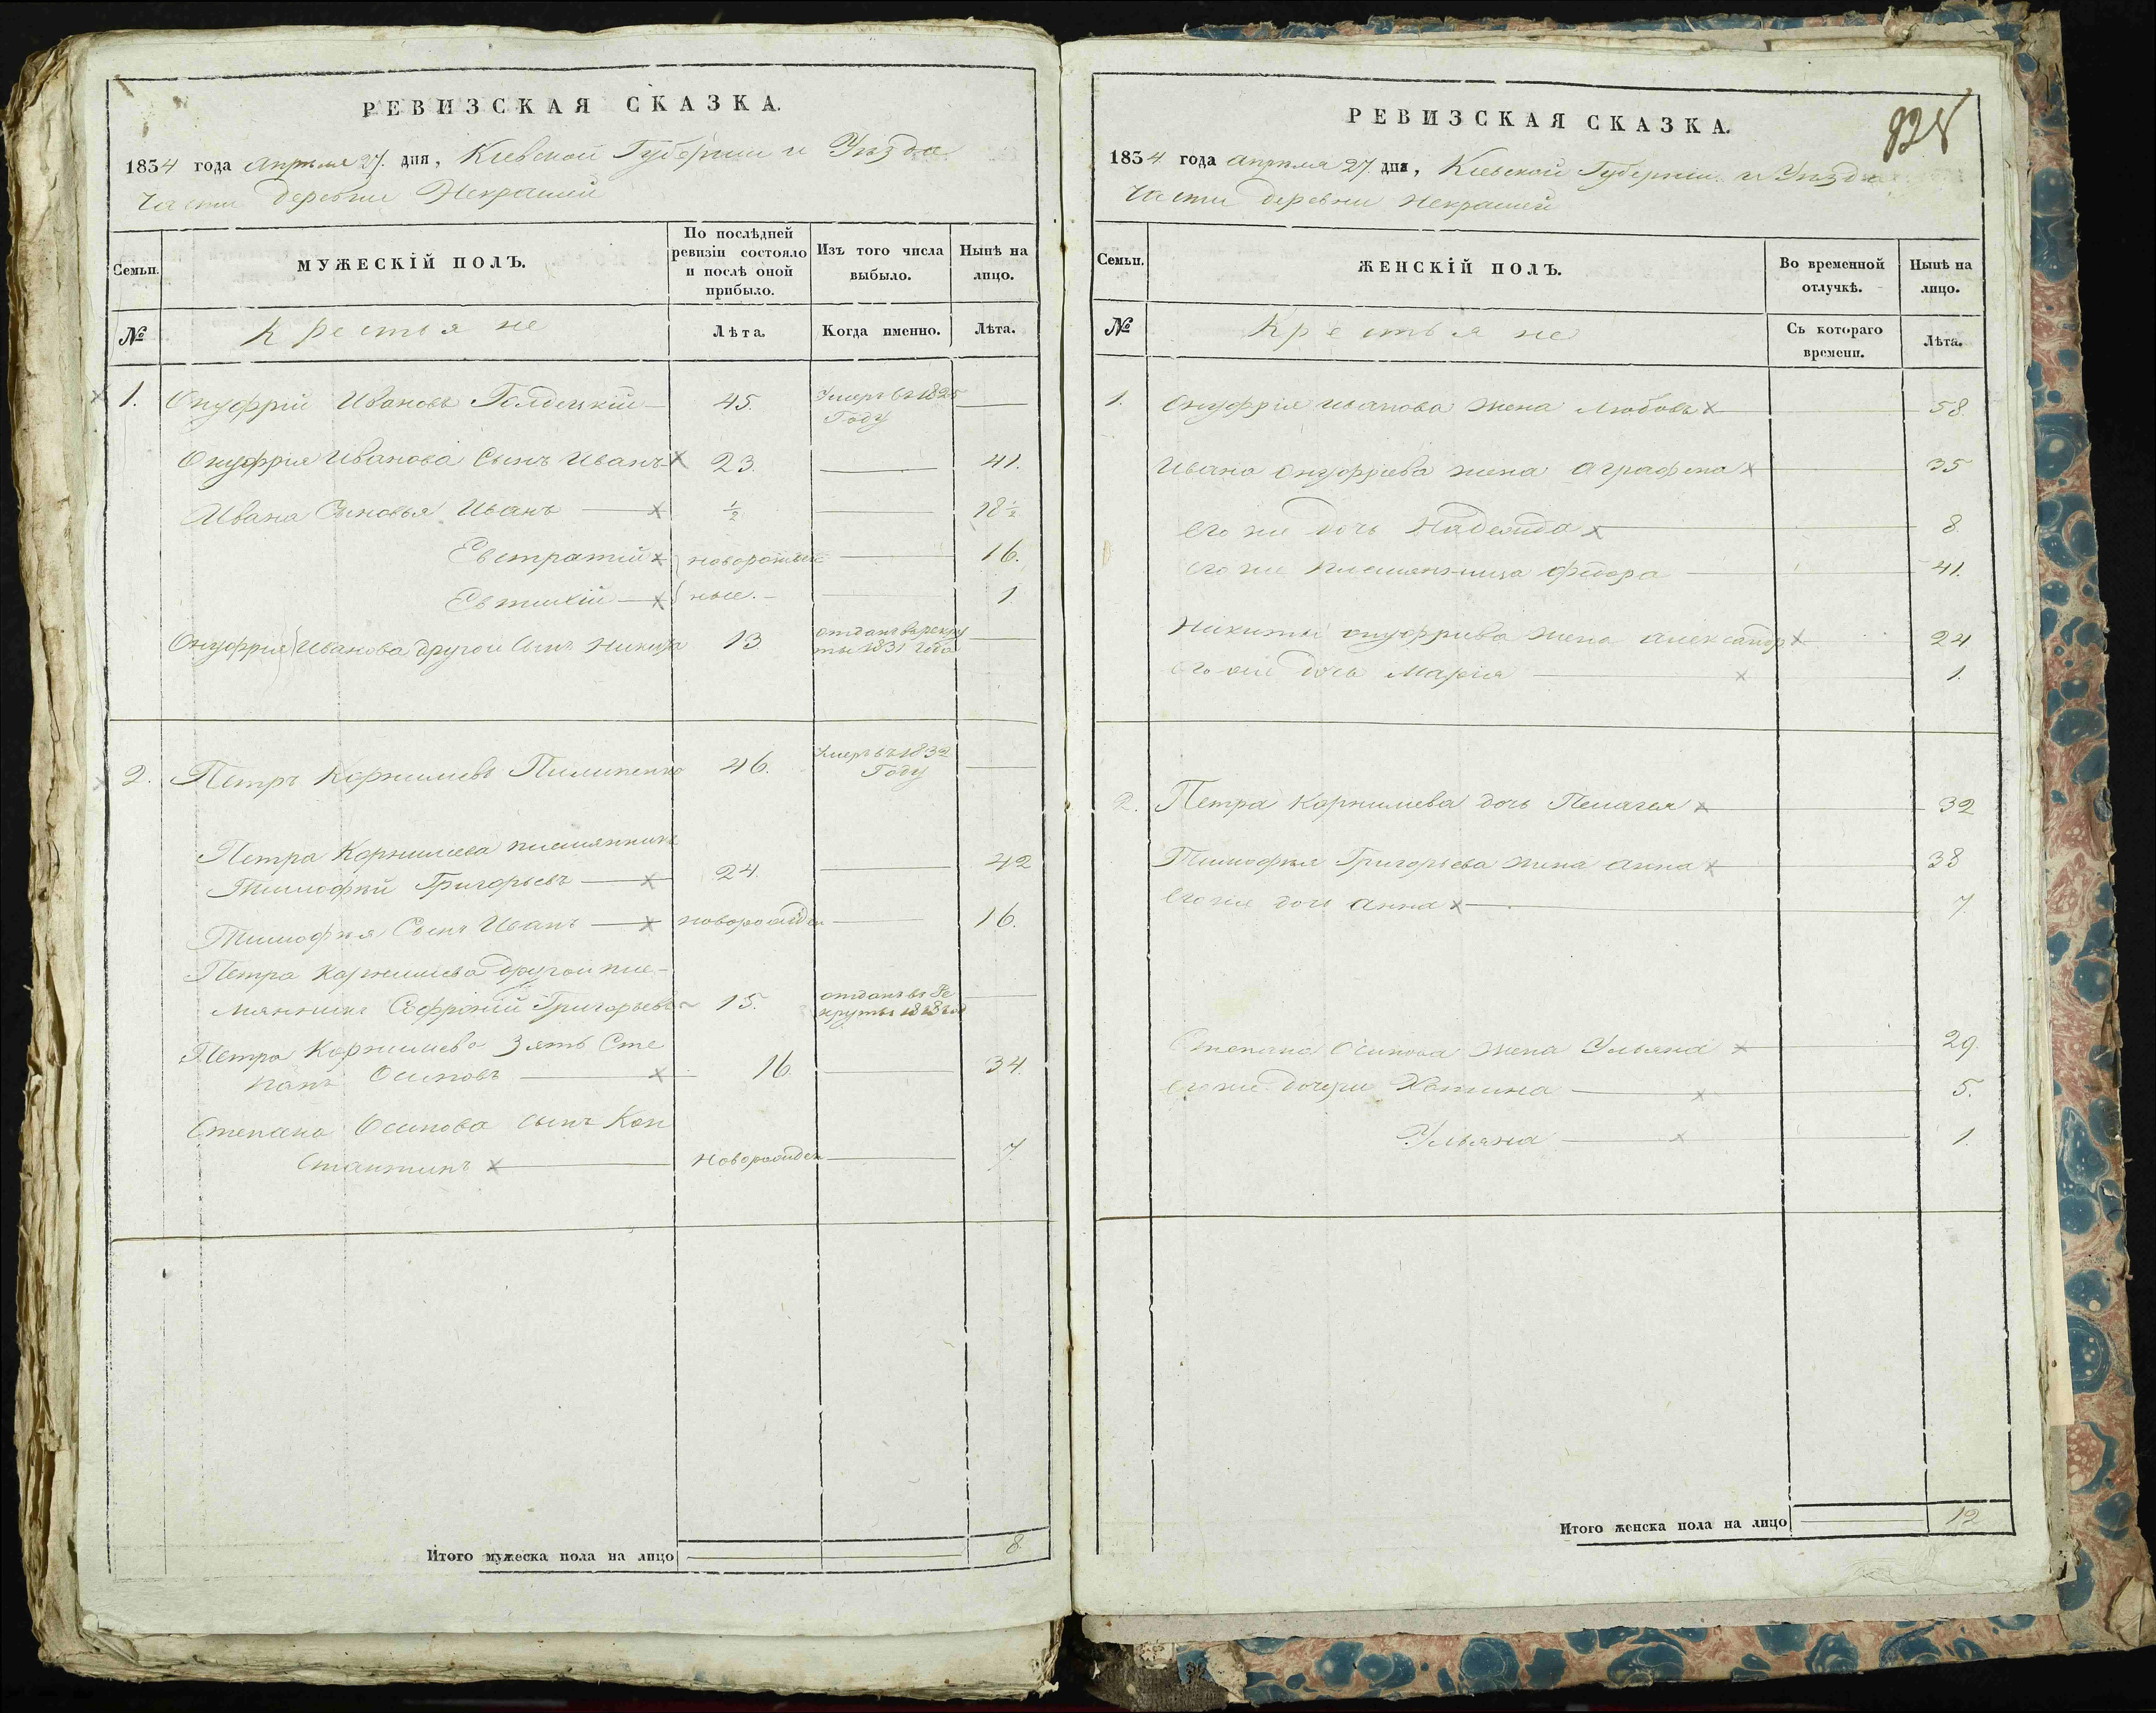 РЕВИЗСКАЯ СКАЗКА.
1834 года апреля 27. дня, Кіевской Губерніи и Уезда
Части деревни Некрашей
Семьи.
МУЖЕСКІЙ ПОЛЪ.
По послѣдней ревизіи состояло и послѣ оной прибыло.
Изъ того числа выбыло.
Нынѣ на лицо.
№
Крестьяне
Лѣта.
Когда именно.
Лѣта.
1. Онуфрій Ивановъ 45. Умеръ въ 1825 Году
Онуфрія Иванова Сынъ Иванъ 23. 41.
Ивана Сыновья Иванъ ½ 18½
Евстратій новорожден 16.
Евтихій ные. 1
Онуфрия Иванова другои Сынъ Никита 13 отданъ в рекру
ты 1831 года
2. Петръ Корнилиевъ Пилипенко 46. Умеръ въ 1832
Году
Петра Корнилиева племянникъ
Тимофей Григорьевъ 24. 42
Тимофея Сынъ Иванъ новорожден 16.
Петра Корнилиева другои пле-
мянникъ Софроній Григорьевъ 15. отданъ въ Ре
круты 1828 год
Петра Корнилиева Зять Сте
панъ Осиповъ 16. 34.
Степана Осипова сынъ Кон
стантинъ новорожден 7.
Итого мужеска пола на лицо 8
РЕВИЗСКАЯ СКАЗКА.
1834 года апреля 27. дня, Кіевской Губерніи и Уезда
Части деревни Некрашей
Семьи.
ЖЕНСКІЙ ПОЛЪ.
Во временной отлучкѣ.
Нынѣ на лицо.
№
Крестьяне
Съ котораго времени.
Лѣта.
1. Онуфрія Иванова жена Любовь 58.
Ивана Онуфриева жена Аграфена 35
Его же дочь Надежда 8.
Его же племянница 41.
Никиты Онуфриева жена Александр 24
Его же дочь Марія 1.
2. Петра Корнилиева дочь Пелагея 32
Тимофея Григорьева жена Анна 38
Его же дочь Анна 7.
Степана Осипова жена Ульяна 29.
Его же дочери 5.
Ульяна 1.
Итого женска пола на лицо 12